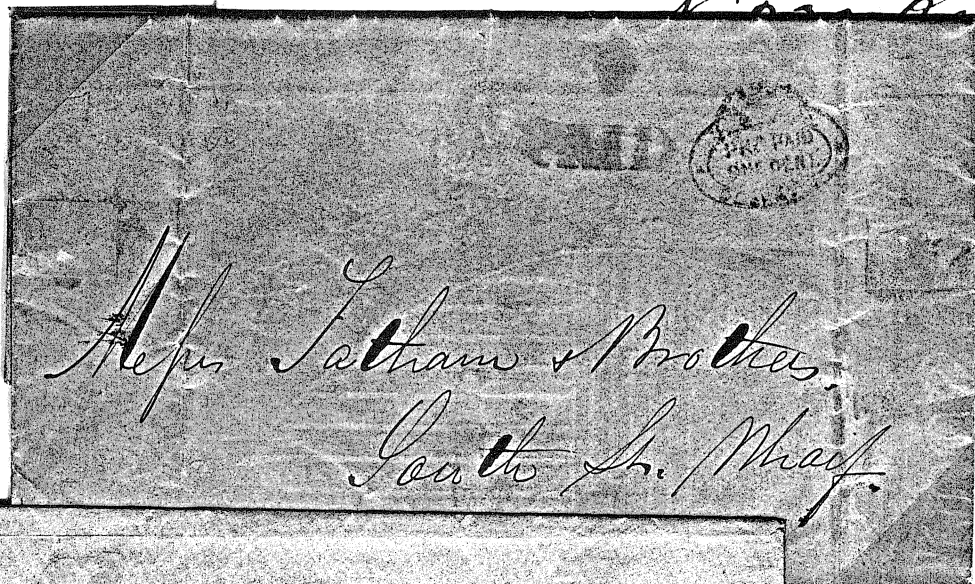 PRE PAID
ONE CENT
Messrs Tatham & Brothers.
South St. Wharf.